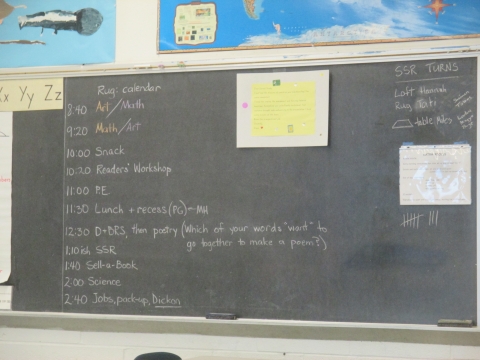 Xx Yy Zz
Rug: calendar
8:40 Art/Math
9:20 Math/Art
10:00 Snack
10:20 Readers' Workshop
11:00 P.E.
11:30 Lunch + recess (PG) ← MH
12:30 D+DRS, then poetry (Which of your words "want" to
go together to make a poem?)
1:10ish SSR
1:40 Sell-a-Book
2:00 Science
2:40 Jobs, pack-up, Dickon
SSR TURNS
Loft Hannah
Rug
table